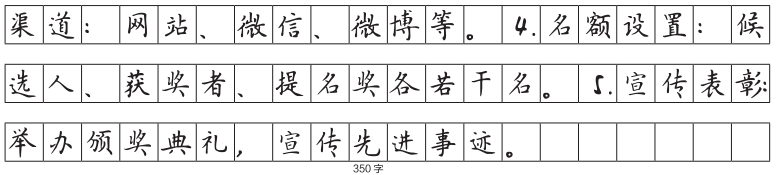 渠道：网站、微信、微博等。4.名额设置：候
选人、获奖者、提名奖各若干名。5.宣传表彰:
举办颁奖典礼，宣传先进事迹。
350字